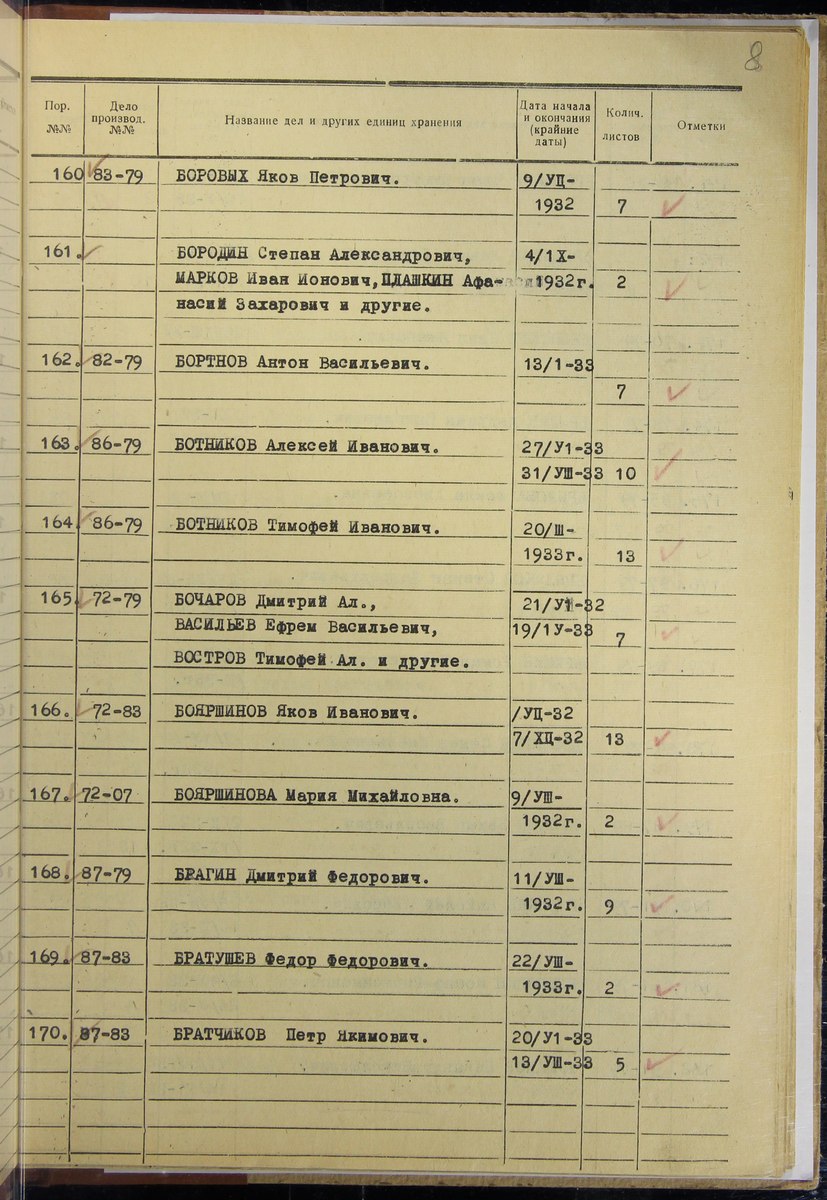 8
Пор. №№ Дело производ. №№ Название дел и других единиц хранения Дата начала и окончания (крайние даты) Колич. листов Отметки
160 83-79 БОРОВЫХ Яков Петрович. 9/УЦ-
1932 7
161. БОРОДИН Степан Александрович, 4/1Х-
МАРКОВ Иван Ионович, ПЛАШКИН Афа- 1932г. 2
насий Захарович и другие.
162. 82-79 БОРТНОВ Антон Васильевич. 13/1-33
7
163. 86-79 БОТНИКОВ Алексей Иванович. 27/У1-33
31/УШ-33 10
164 86-79 БОТНИКОВ Тимофей Иванович. 20/Ш-
1933г. 13
165. 72-79 БОЧАРОВ Дмитрий Ал., 21/У1-32
ВАСИЛЬЕВ Ефрем Васильевич, 19/1У-33 7
ВОСТРОВ Тимофей Ал. и другие.
166. 72-83 БОЯРШИНОВ Яков Иванович. /УЦ-32
7/ХЦ-32 13
167. 72-07 БОЯРШИНОВА Мария Михайловна. 9/УШ-
1932г. 2
168. 87-79 БРАГИН Дмитрий Федорович. 11/УШ-
1932г. 9
169. 87-83 БРАТУШЕВ Федор Федорович. 22/УШ-
1933г. 2
170. 87-83 БРАТЧИКОВ Петр Якимович. 20/У1-33
13/УШ-33 5